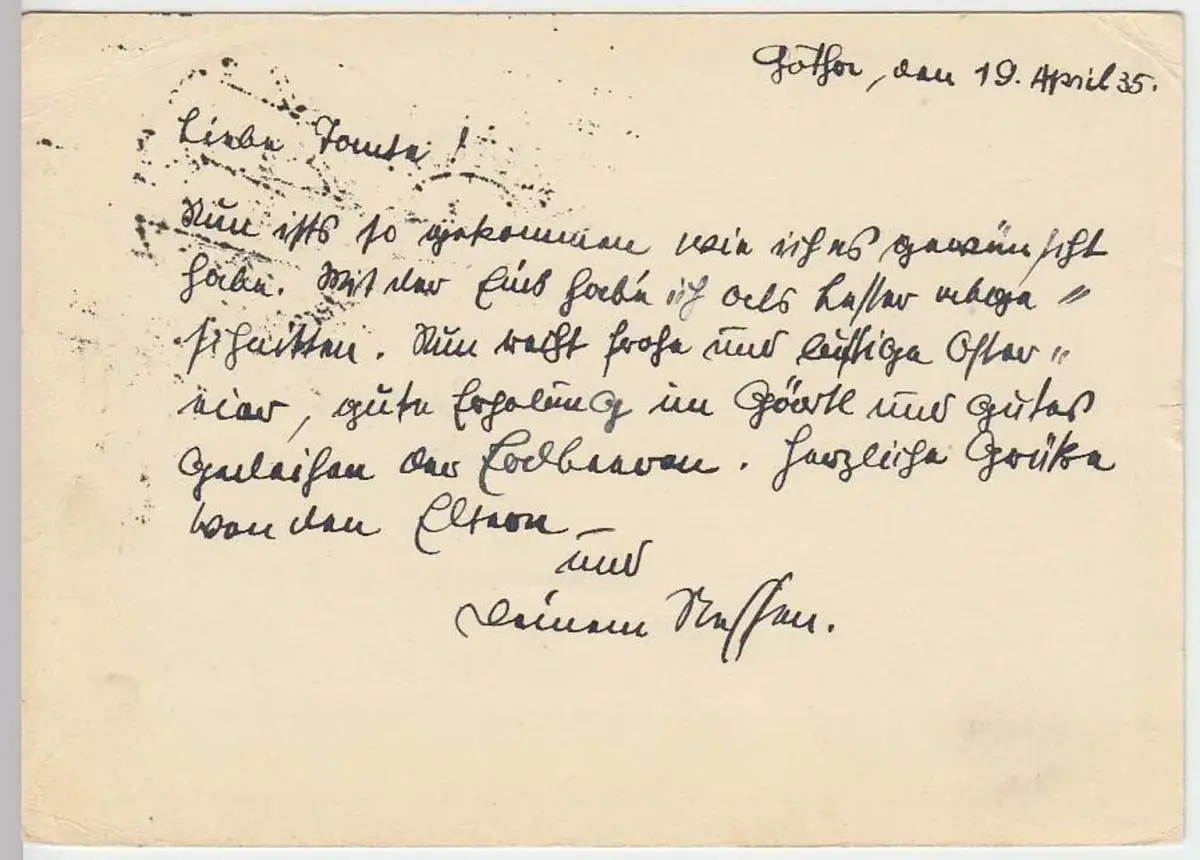 Gotha, den 19. April 35.
Liebe Tante!
Nun ists so gekommen wie ich es gewünscht
habe. Mit der Eins habe ich als bester abge=
schnitten. Nun recht frohe und lustige Oster=
eier, gute Erholung im Gärtl und gutes
Gedeihen der Erdbeeren. Herzliche Grüße
von den Eltern
und
Deinem Neffen.